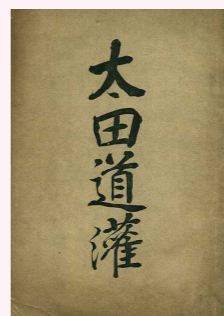 太田道灌